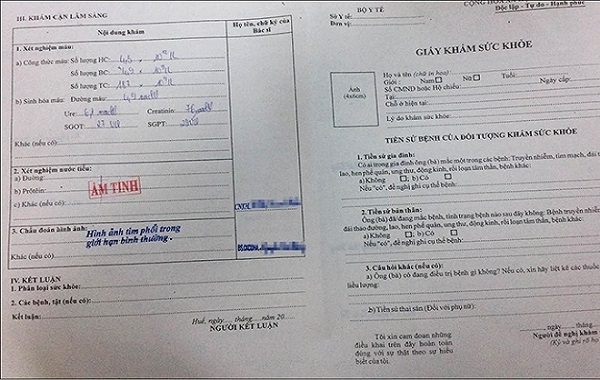 III. KHÁM CẬN LÂM SÀNG
Nội dung khám
Họ tên, chữ ký của
Bác sĩ
1. Xét nghiệm máu:
a) Công thức máu: Số lượng HC:
Số lượng BC:
Số lượng TC:
b) Sinh hóa máu: Đường máu:
Ure: Creatinin:
SGOT: SGPT:
Khác (nếu có):
2. Xét nghiệm nước tiểu:
a) Đường:
b) Prôtêin:
ÂM TÍNH
c) Khác (nếu có):
3. Chẩn đoán hình ảnh:
Hình ảnh tim phổi trong
giới hạn bình thường.
Khác (nếu có):
IV. KẾT LUẬN
1. Phân loại sức khỏe:
2. Các bệnh, tật (nếu có):
Kết luận:
Huế, ngày.....tháng.....năm 20
NGƯỜI KẾT LUẬN
BỘ Y TẾ
Số Y tế:
Đơn vị:
Độc lập - Tự do - Hạnh phúc
GIẤY KHÁM SỨC KHỎE
Ảnh
(4x6cm)
Họ và tên (chữ in hoa):
Giới: Nam Nữ Tuổi:
Số CMND hoặc Hộ chiếu: Ngày cấp:
Tại:
Chỗ ở hiện tại:
Lý do khám sức khỏe:
TIỀN SỬ BỆNH CỦA ĐỐI TƯỢNG KHÁM SỨC KHỎE
1. Tiền sử gia đình:
Có ai trong gia đình ông (bà) mắc một trong các bệnh: Truyền nhiễm, tim mạch, đái
lao, hen phế quản, ung thư, động kinh, rối loạn tâm thần, bệnh khác:
a) Không b) Có
Nếu "có", đề nghị ghi cụ thể bệnh:
2. Tiền sử bản thân:
Ông (bà) đã đang mắc bệnh, tình trạng bệnh nào sau đây không: Bệnh truyền nhiễm
đái tháo đường, lao, hen phế quản, ung thư, động kinh, rối loạn tâm thần, bệnh khác:
a) Không b) Có
Nếu "có", đề nghị ghi cụ thể bệnh:
3. Câu hỏi khác (nếu có):
a) Ông (bà) có đang điều trị bệnh gì không? Nếu có, xin hãy liệt kê các thuốc
liều lượng:
b) Tiền sử thai sản (Đối với phụ nữ):
Tôi xin cam đoan những
điều khai trên đây hoàn toàn
đúng với sự thật theo sự hiểu
biết của tôi.
ngày tháng
Người đề nghị khám
(Ký và ghi rõ họ